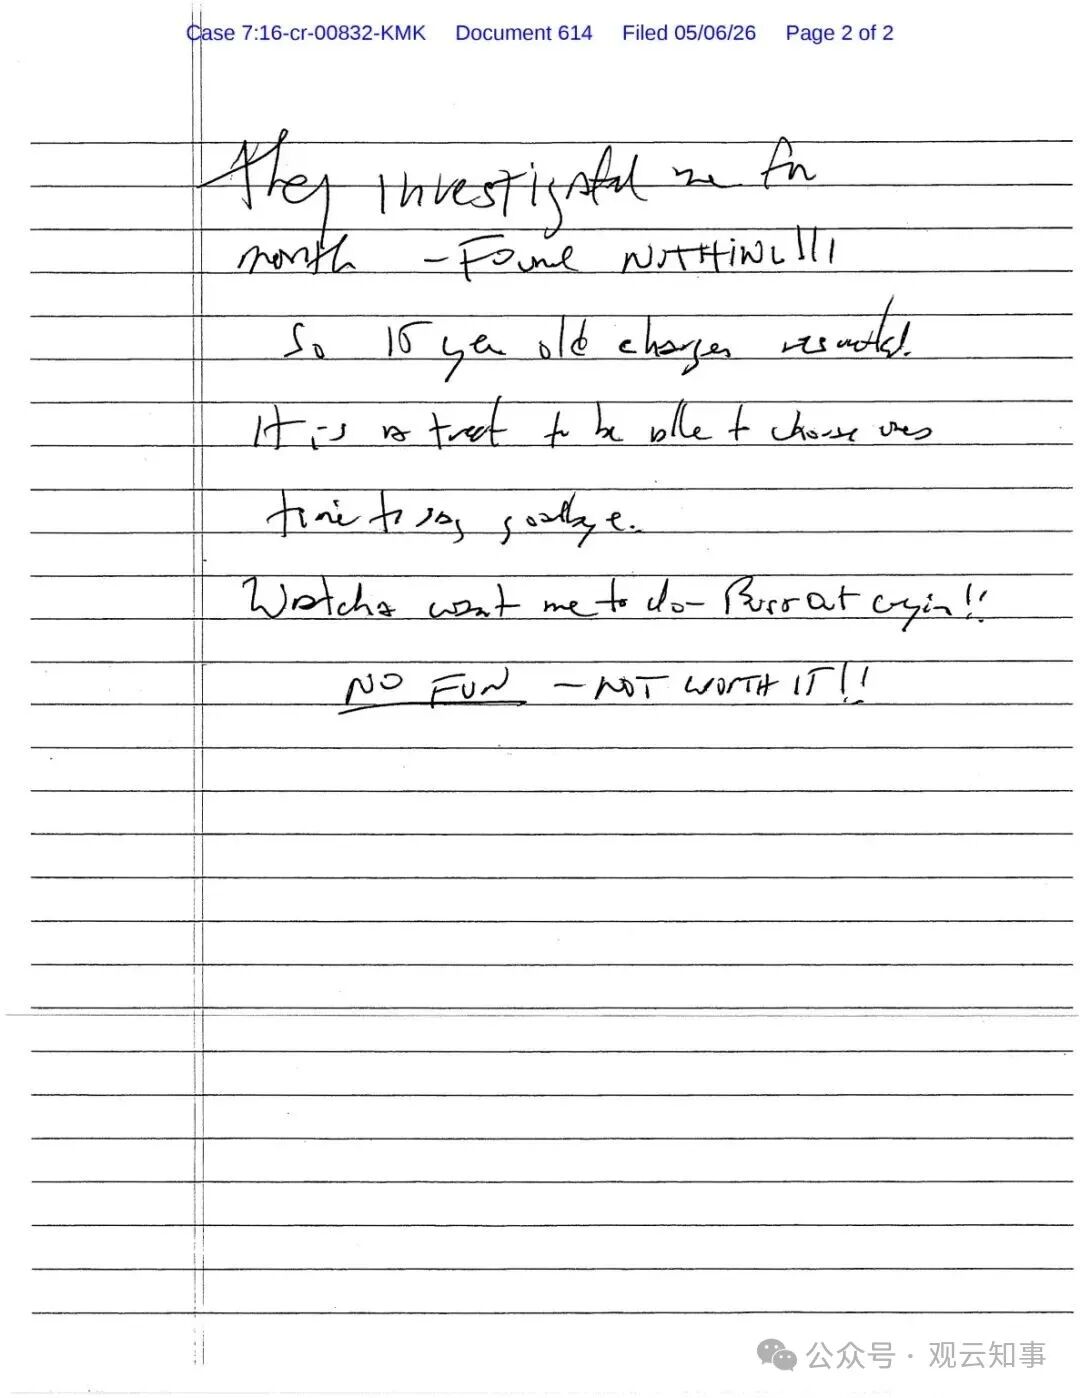 Case 7:16-cr-00832-KMK Document 614 Filed 05/06/26 Page 2 of 2
They investigated me for
month - Found NOTHING!!!
So 15 year old charges resulted.
It is a treat to be able to choose ones
time to say goodbye.
Watcha want me to do - Burst out cryin!!
NO FUN - NOT WORTH IT!!
公众号 · 观云知事